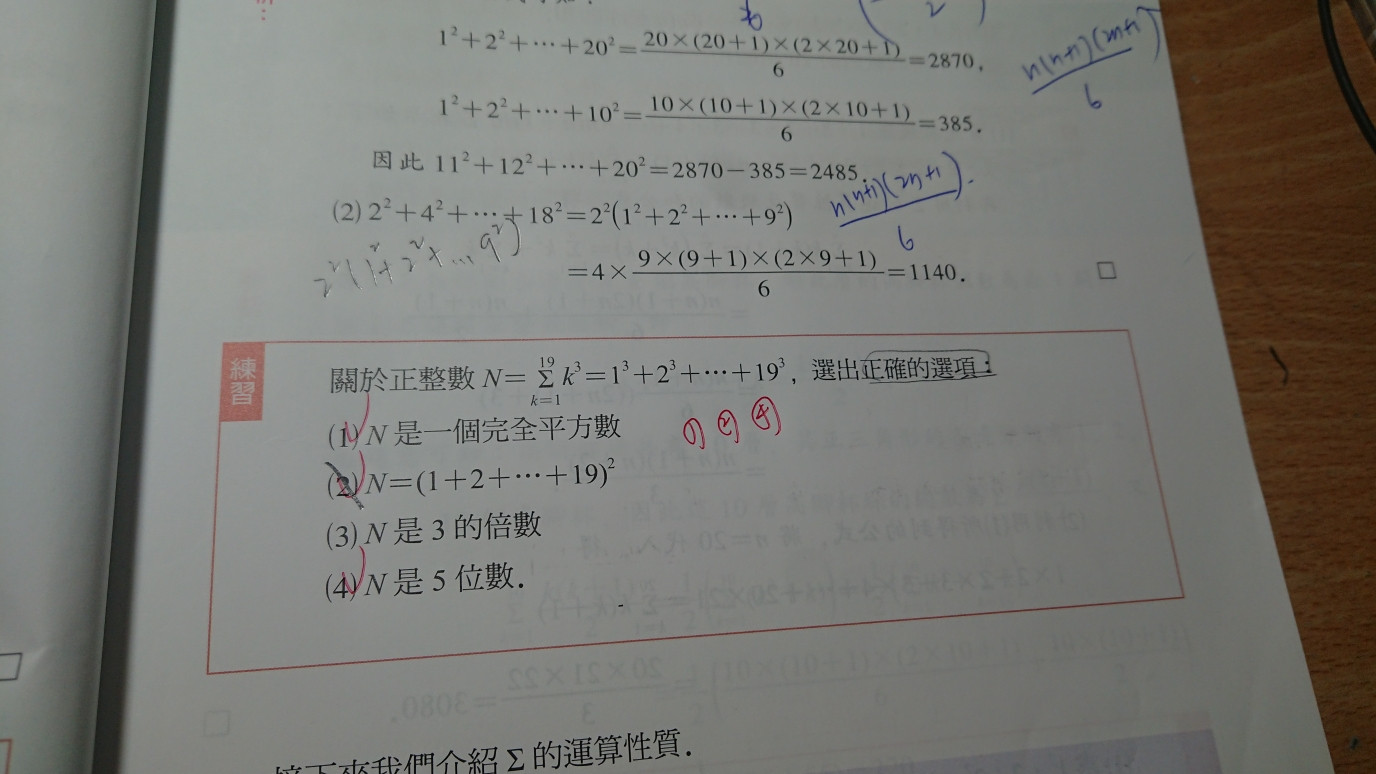 1²+2²+⋯+20²=20×(20+1)×(2×20+1)/6=2870,
n(n+1)(2n+1)/6
1²+2²+⋯+10²=10×(10+1)×(2×10+1)/6=385.
因此 11²+12²+⋯+20²=2870−385=2485.
n(n+1)(2n+1)/6
(2) 2²+4²+⋯+18²=2²(1²+2²+⋯+9²)
2²(1²+2²+...9²)
=4×9×(9+1)×(2×9+1)/6=1140.
練習
關於正整數 N=Σ_{k=1}^{19} k³=1³+2³+⋯+19³, 選出正確的選項:
(1) N 是一個完全平方數
① ② ④
(2) N=(1+2+⋯+19)²
(3) N 是 3 的倍數
(4) N 是 5 位數.
接下來我們介紹 Σ 的運算性質.